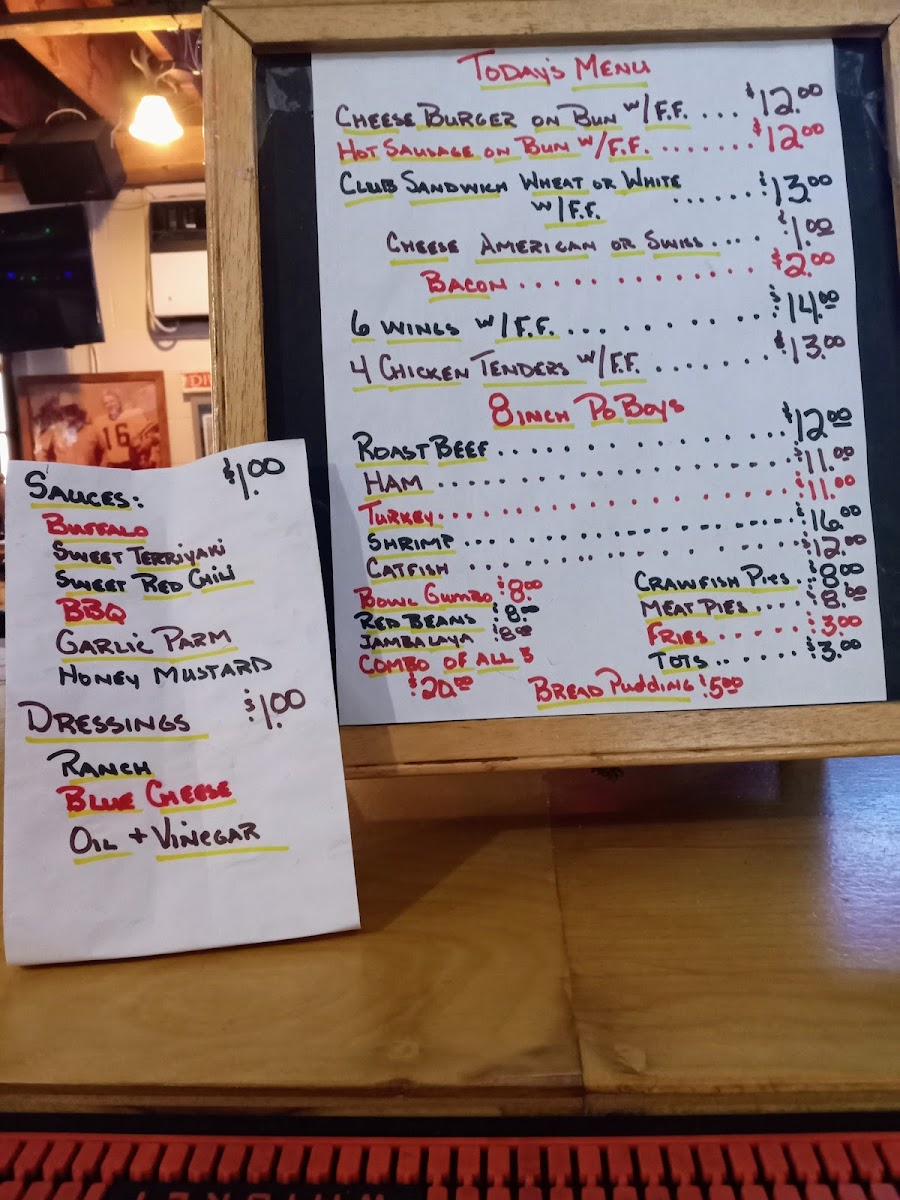 TODAY'S MENU
CHEESE BURGER ON BUN W/F.F. .... $12.00
HOT SAUSAGE ON BUN W/F.F. ....... $12.00
CLUB SANDWICH WHEAT OR WHITE
W/F.F. ...... $13.00
CHEESE AMERICAN OR SWISS .... $1.00
BACON ............ $2.00
6 WINGS W/F.F. .......... $14.00
4 CHICKEN TENDERS W/F.F. ....... $13.00
8 INCH PO BOYS
ROAST BEEF ............ $12.00
HAM ............ $11.00
TURKEY ............ $11.00
SHRIMP ............ $16.00
CATFISH ............ $12.00
BOWL GUMBO $8.00
RED BEANS $8.00
JAMBALAYA $8.00
COMBO OF ALL 3
$20.00
CRAWFISH PIES . $8.00
MEAT PIES .... $8.00
FRIES ...... $3.00
TOTS ....... $3.00
BREAD PUDDING $5.00
SAUCES: $1.00
BUFFALO
SWEET TERRIYAKI
SWEET RED CHILI
BBQ
GARLIC PARM
HONEY MUSTARD
DRESSINGS $1.00
RANCH
BLUE CHEESE
OIL + VINEGAR
16